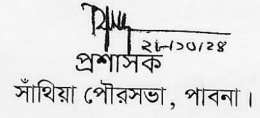 ২৮/১০/২৪
প্রশাসক
সাঁথিয়া পৌরসভা, পাবনা।